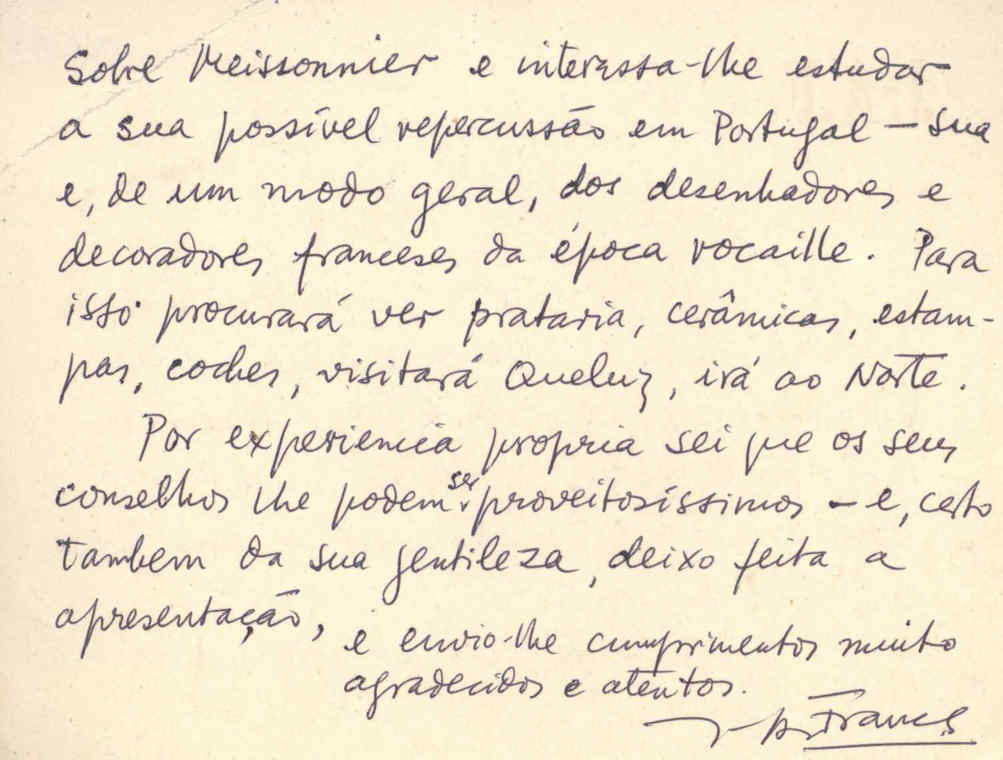 Sobre Meissonnier e interessa-lhe estudar
a sua possível repercussão em Portugal – sua
e, de um modo geral, dos desenhadores e
decoradores franceses da época rocaille. Para
isso procurará ver prataria, cerâmicas, estam-
pas, coches, visitará Queluz, irá ao Norte.
Por experiencia propria sei que os seus
conselhos lhe podem ser proveitosíssimos – e, certo
tambem da sua gentileza, deixo feita a
apresentação,
e envio-lhe cumprimentos muito
agradecidos e atentos.
França